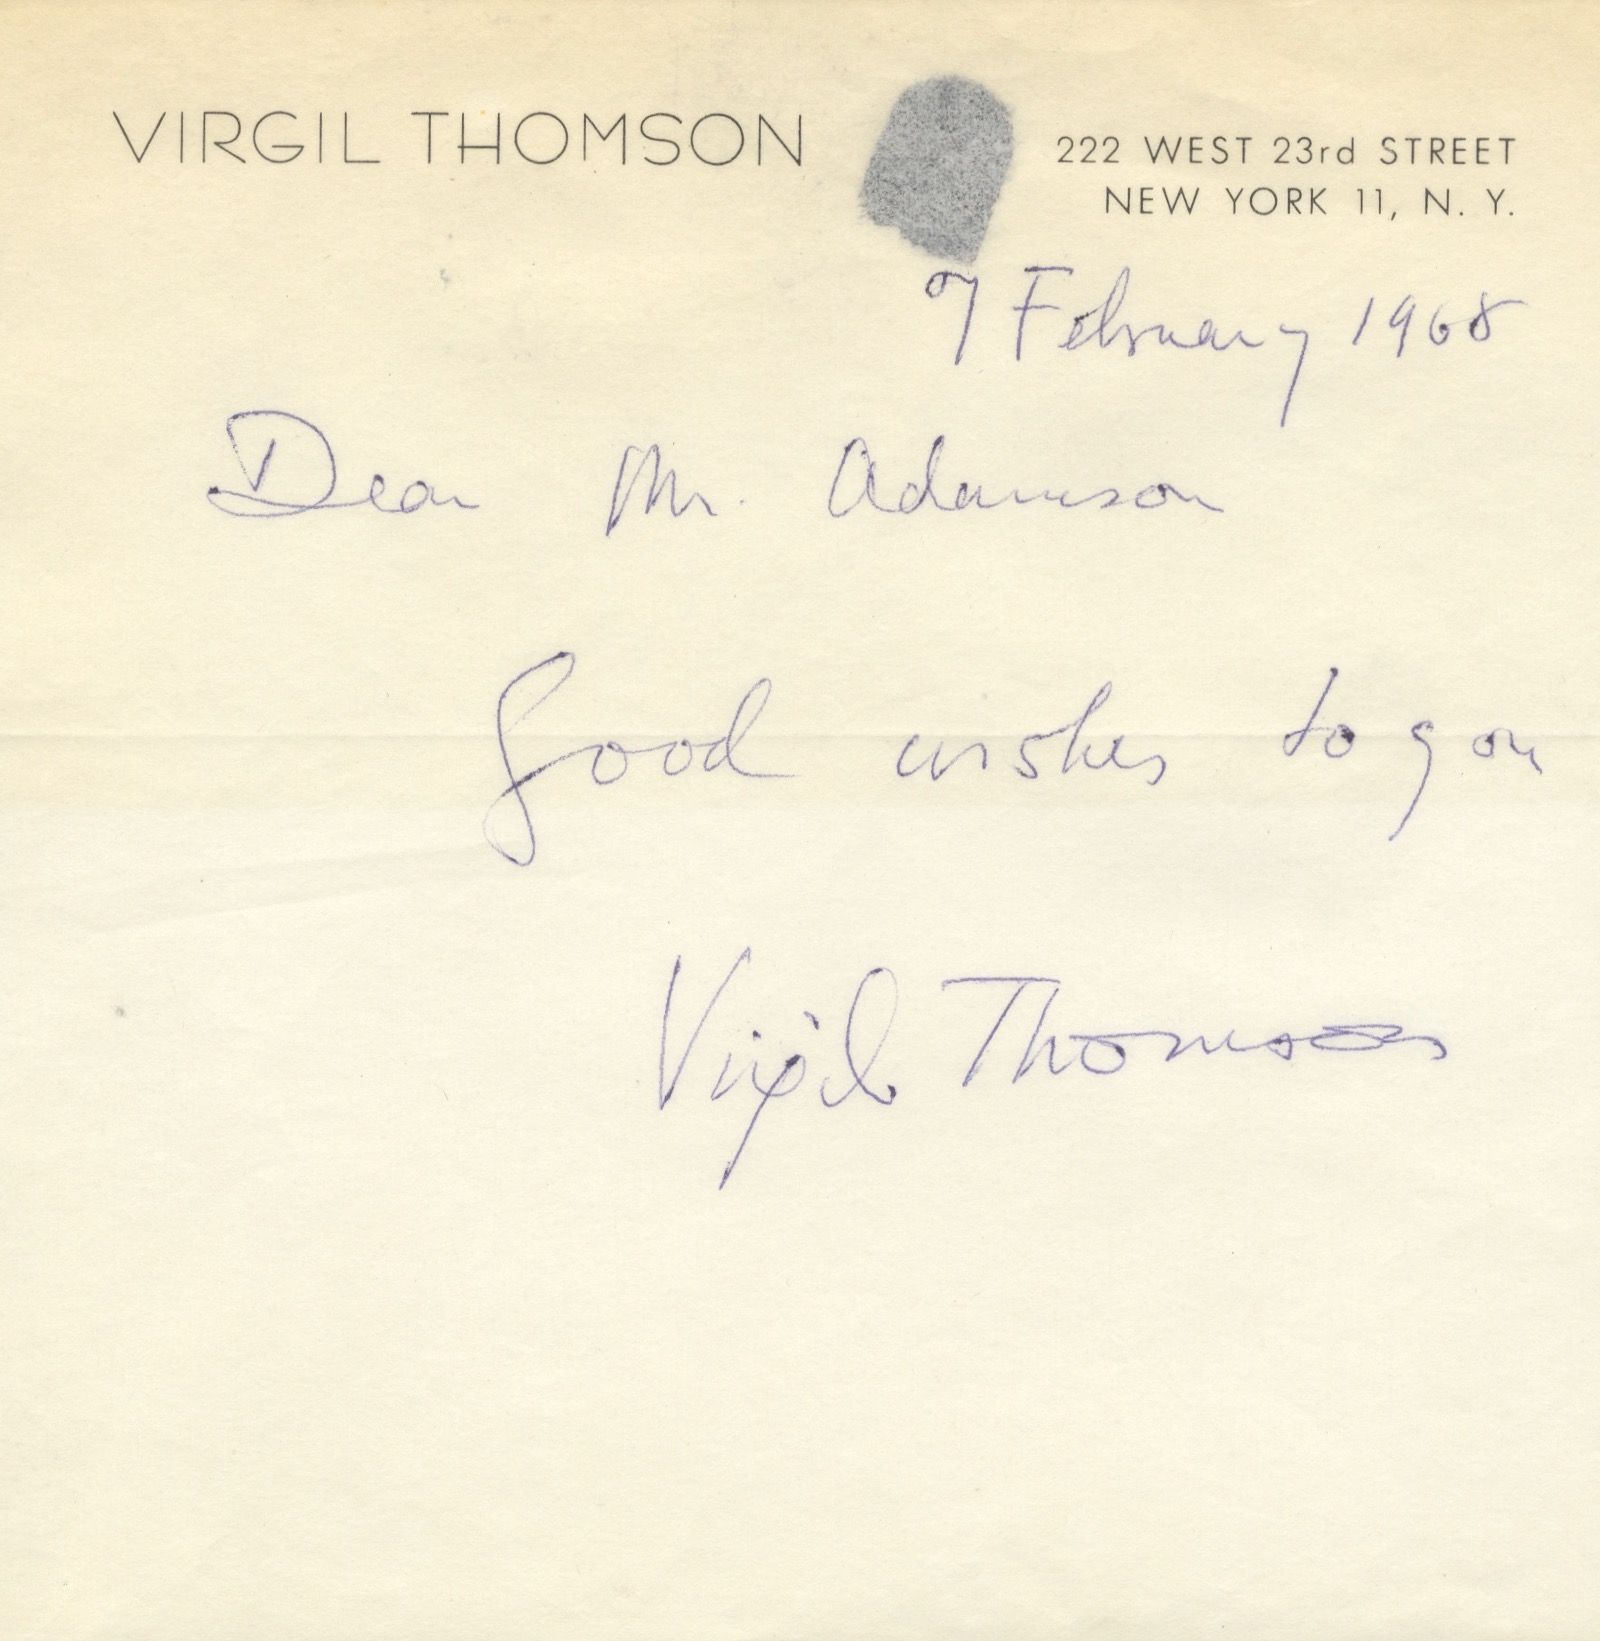 VIRGIL THOMSON
222 WEST 23rd STREET
NEW YORK 11, N. Y.
7 February 1968
Dear Mr. Adamson
Good wishes to you
Virgil Thomson